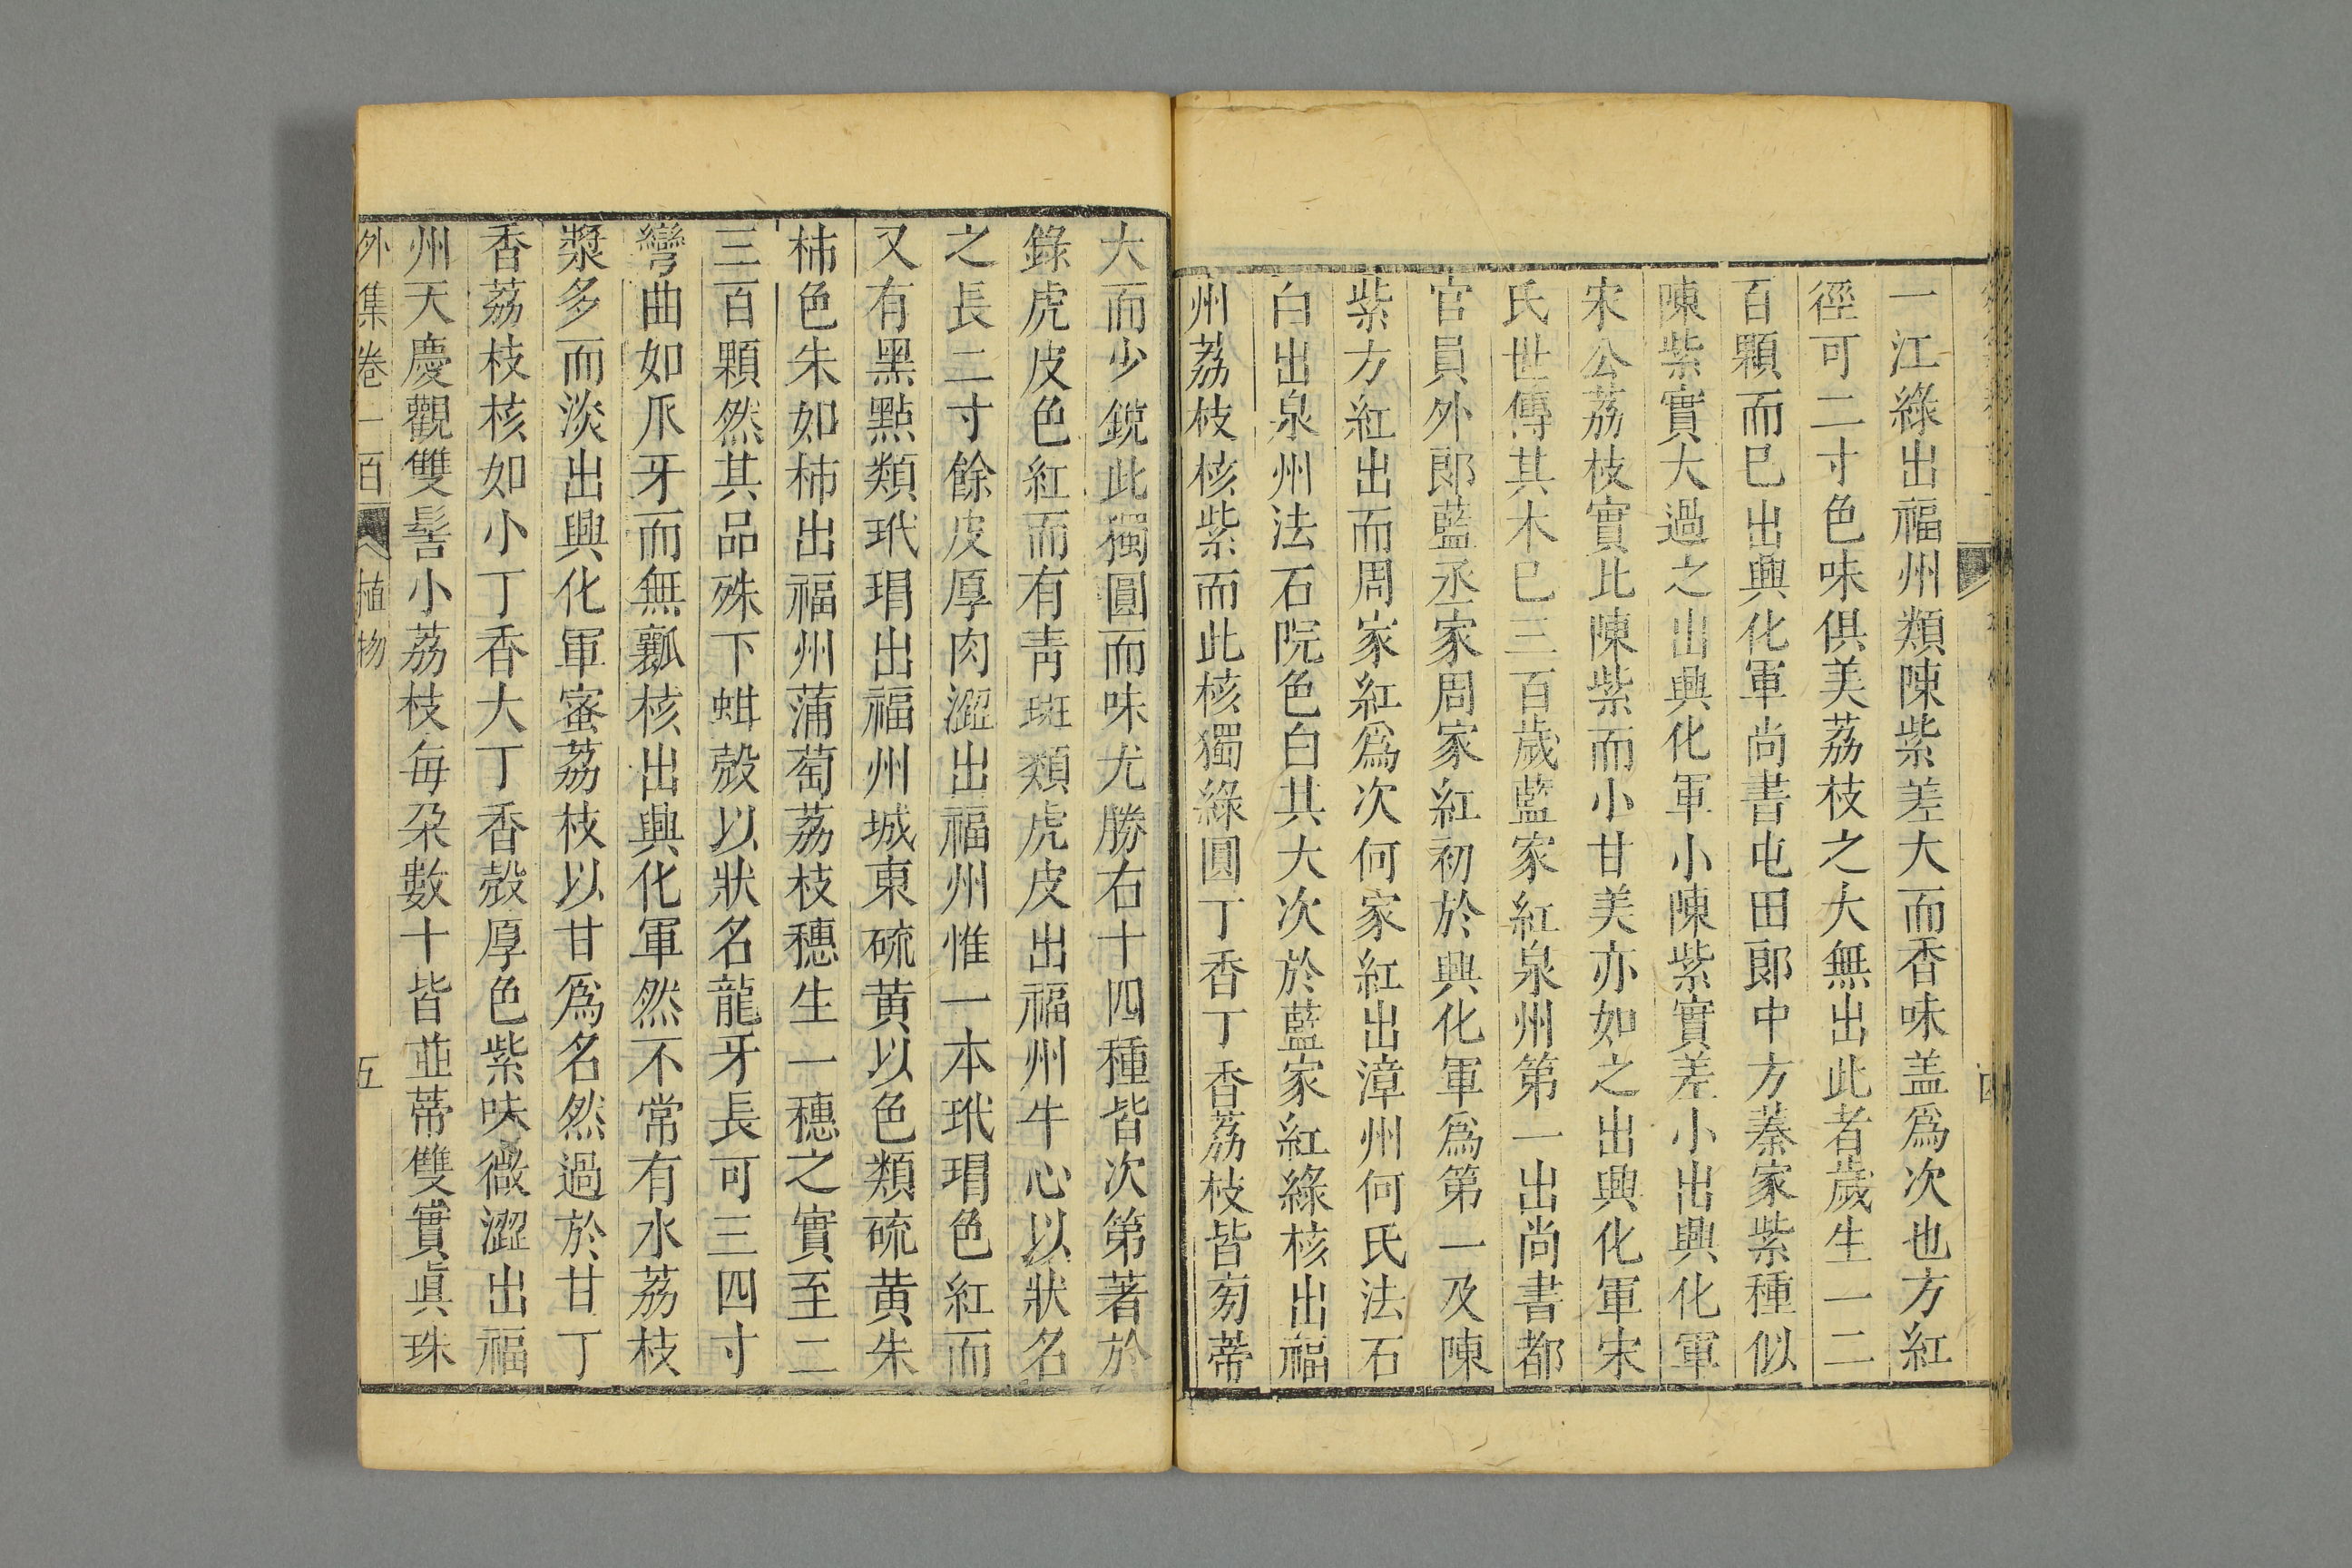 一江綠出福州類陳紫差大而香味盖爲次也方紅
徑可二寸色味俱美荔枝之大無出此者歲生一二
百顆而已出興化軍尚書屯田郞中方蓁家紫種似
陳紫實大過之出興化軍小陳紫實差小出興化軍
宋公荔枝實比陳紫而小甘美亦如之出興化軍宋
氏世傳其木已三百歲藍家紅泉州第一出尚書都
官員外郎藍丞家周家紅初於興化軍爲第一及陳
紫方紅出而周家紅爲次何家紅出漳州何氏法石
白出泉州法石院色白其大次於藍家紅綠核出福
州荔枝核紫而此核獨綠圓丁香丁香荔枝皆旁蒂
大而少鋭此獨圓而味尤勝右十四種皆次第著於
錄虎皮皮色紅而有靑斑類虎皮出福州牛心以狀名
之長二寸餘皮厚肉澀出福州惟一本玳瑁色紅而
又有黑點類玳瑁出福州城東硫黄以色類硫黄朱
柿色朱如柿出福州蒲萄荔枝穗生一穗之實至二
三百顆然其品殊下蚶殼以狀名龍牙長可三四寸
彎曲如爪牙而無瓤核出興化軍然不常有水荔枝
漿多而淡出興化軍蜜荔枝以甘爲名然過於甘丁
香荔枝核如小丁香大丁香殼厚色紫味微澀出福
州天慶觀雙髻小荔枝每朶數十皆並蒂雙實眞珠
外集卷一百 植物 五